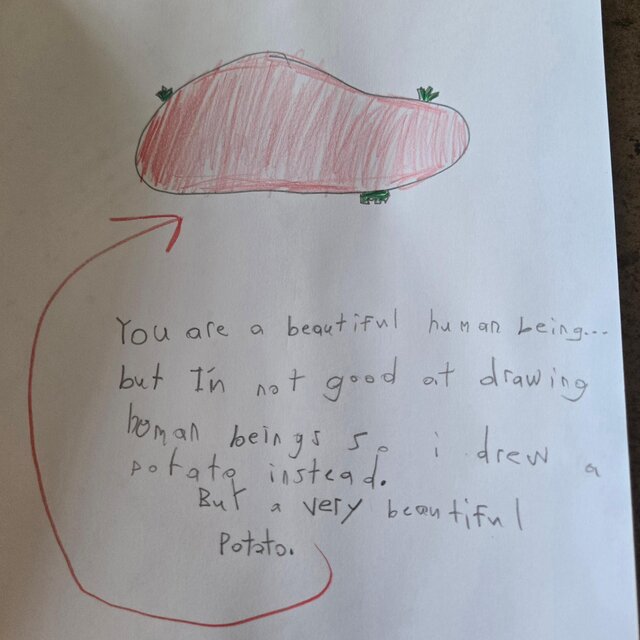 You are a beautiful human being...
but I'm not good at drawing
human beings so i drew a
potato instead.
But a very beautiful
Potato.